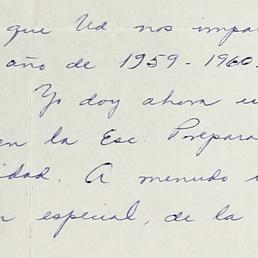 que Ud. nos impa
año de 1959-1960.
Yo doy ahora u
en la Esc. Prepara
idad. A menudo
especial, de la